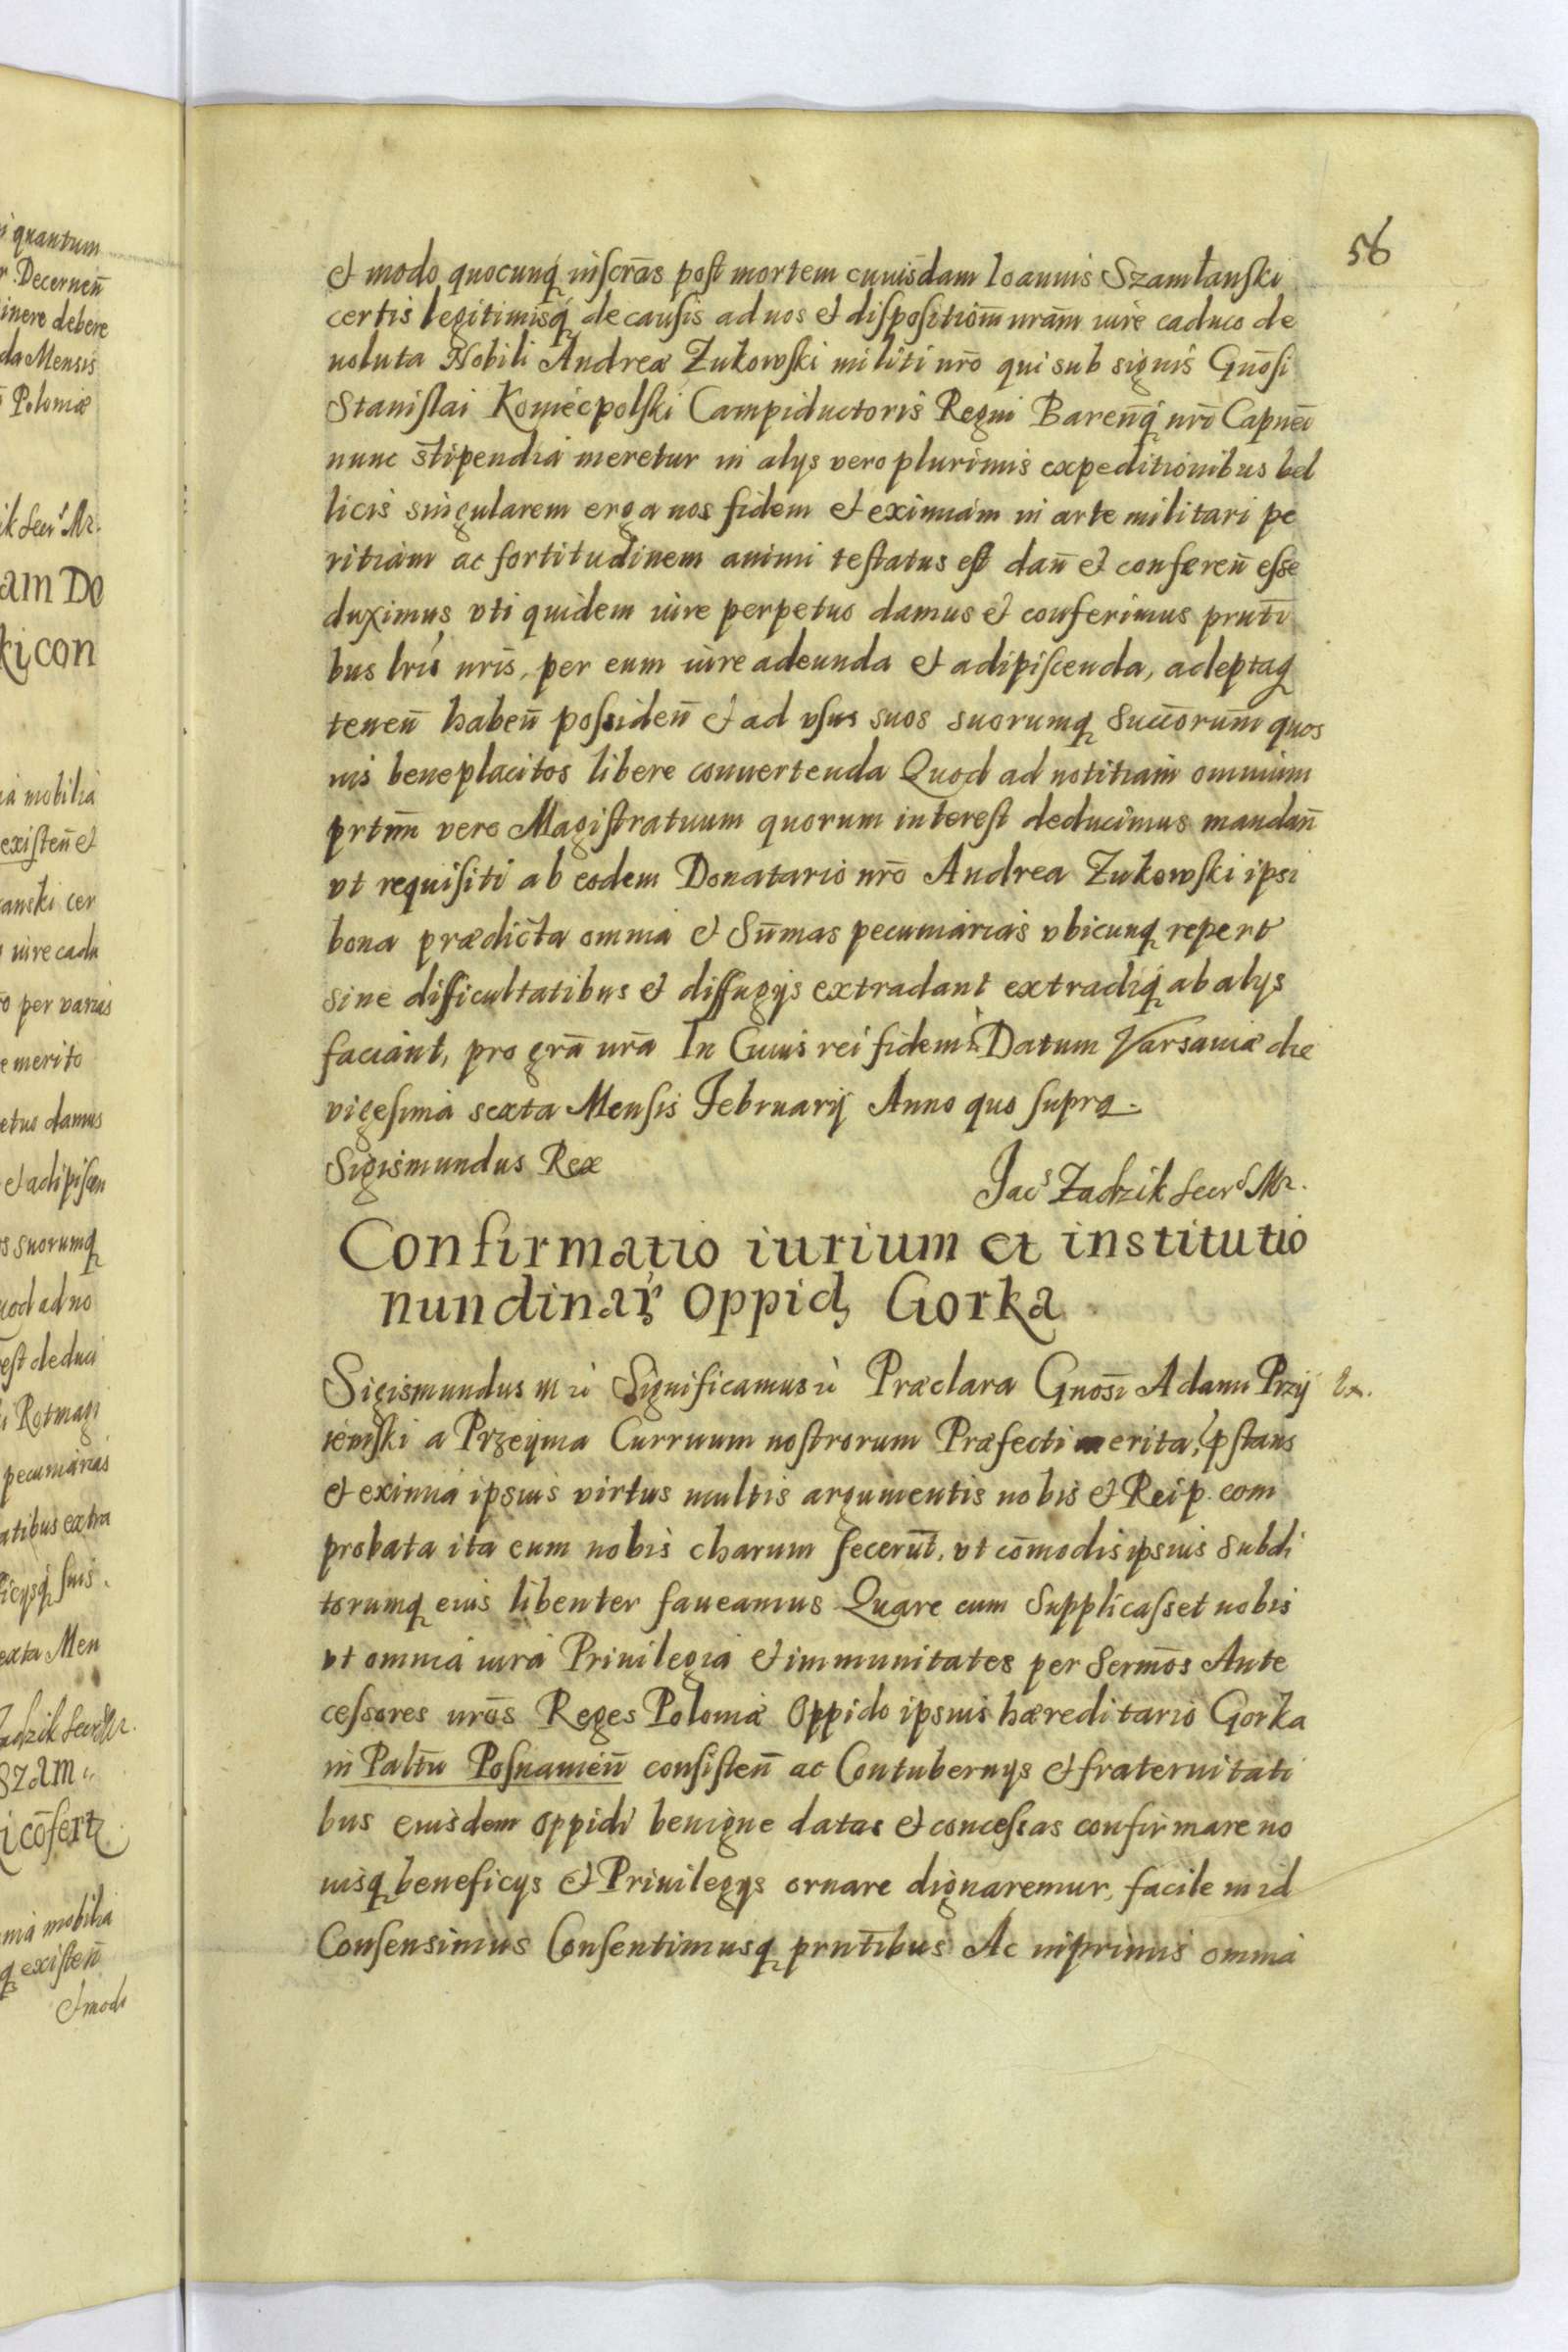 i quantum
r. Decernen̄
inere debere
da Mensis
Poloniæ
am Do
ki con
ia mobilia
existen̄ et
anski cer
iure cadu
o per varias
e merito
etuo damus
et adipiscen
s suorumq
uod ad no
est deduci
i Rotmagi
pecuniarias
atibus extra
suis.
exta Men
Szam
i cōfert
nia mobilia
q existen̄
Et modo
56
et modo quocunq inscr̄as post mortem cuiusdam Ioannis Szamłanski
certis legitimisq de causis ad nos et dispositiom̄ nrām iure caduco de
uoluta Nobili Andreæ Zukowski militi nrō qui sub signis Gnōsi
Stanislai Koniecpolski Campiductoris Regni Baren̄q nrī Capnei
nunc stipendia meretur in alys vero plurimis expeditionibus bel
licis singularem erga nos fidem et eximiam in arte militari pe
ritiam ac fortitudinem animi testatus est dan̄ et conferen̄ esse
duximus vti quidem iure perpetuo damus et conferimus prnti
bus lrīs nrīs, per eum iure adeunda et adipiscenda, adeptaq
tenen̄ haben̄ possiden̄ et ad vsus suos suorumq Succorum̄ quos
uis beneplacitos libere conuertenda Quod ad notitiam omnium
prtm̄ vero Magistratuum quorum interest deducimus mandan̄
vt requisiti ab eodem Donatario nrō Andrea Zukowski ipsi
bona prædicta omnia et Sum̄as pecuniarias vbicunq repert
sine difficultatibus et diffugys extradant extradiq ab alys
faciant, pro grā nrā In Cuius rei fidem ꝛ Datum Varsauiæ die
vigesima sexta Mensis Februarij Anno quo supra.
Sigismundus Rex
Jacs Zadzik Secrs Mr.
Confirmatio iurium et institutio
nundinaꝝ oppidj Gorka
Sigismundus III ꝛ Significamus ꝛ Præclara Gnosī Adami Przy
iemski a Przeyma Curruum nostrorum Præfecti merita, pstans
et eximia ipsius virtus multis argumentis nobis et Reip. com
probata ita eum nobis charum fecerūt, vt com̄odis ipsius subdi
torumq eius libenter faueamus Quare cum Supplicasset nobis
vt omnia iura Priuilegia et immunitates per Sermōs Ante
cessores nrōs Reges Poloniæ Oppido ipsius hæreditario Gorka
in Paltū Posnanien̄ consisten̄ ac Contubernys et fraternitati
bus eiusdem oppidi benigne datas et concessas confirmare no
uisq beneficys et Priuilegys ornare dignaremur, facile in id
Consensimus Consentimusq prntībus Ac inprimis omnia